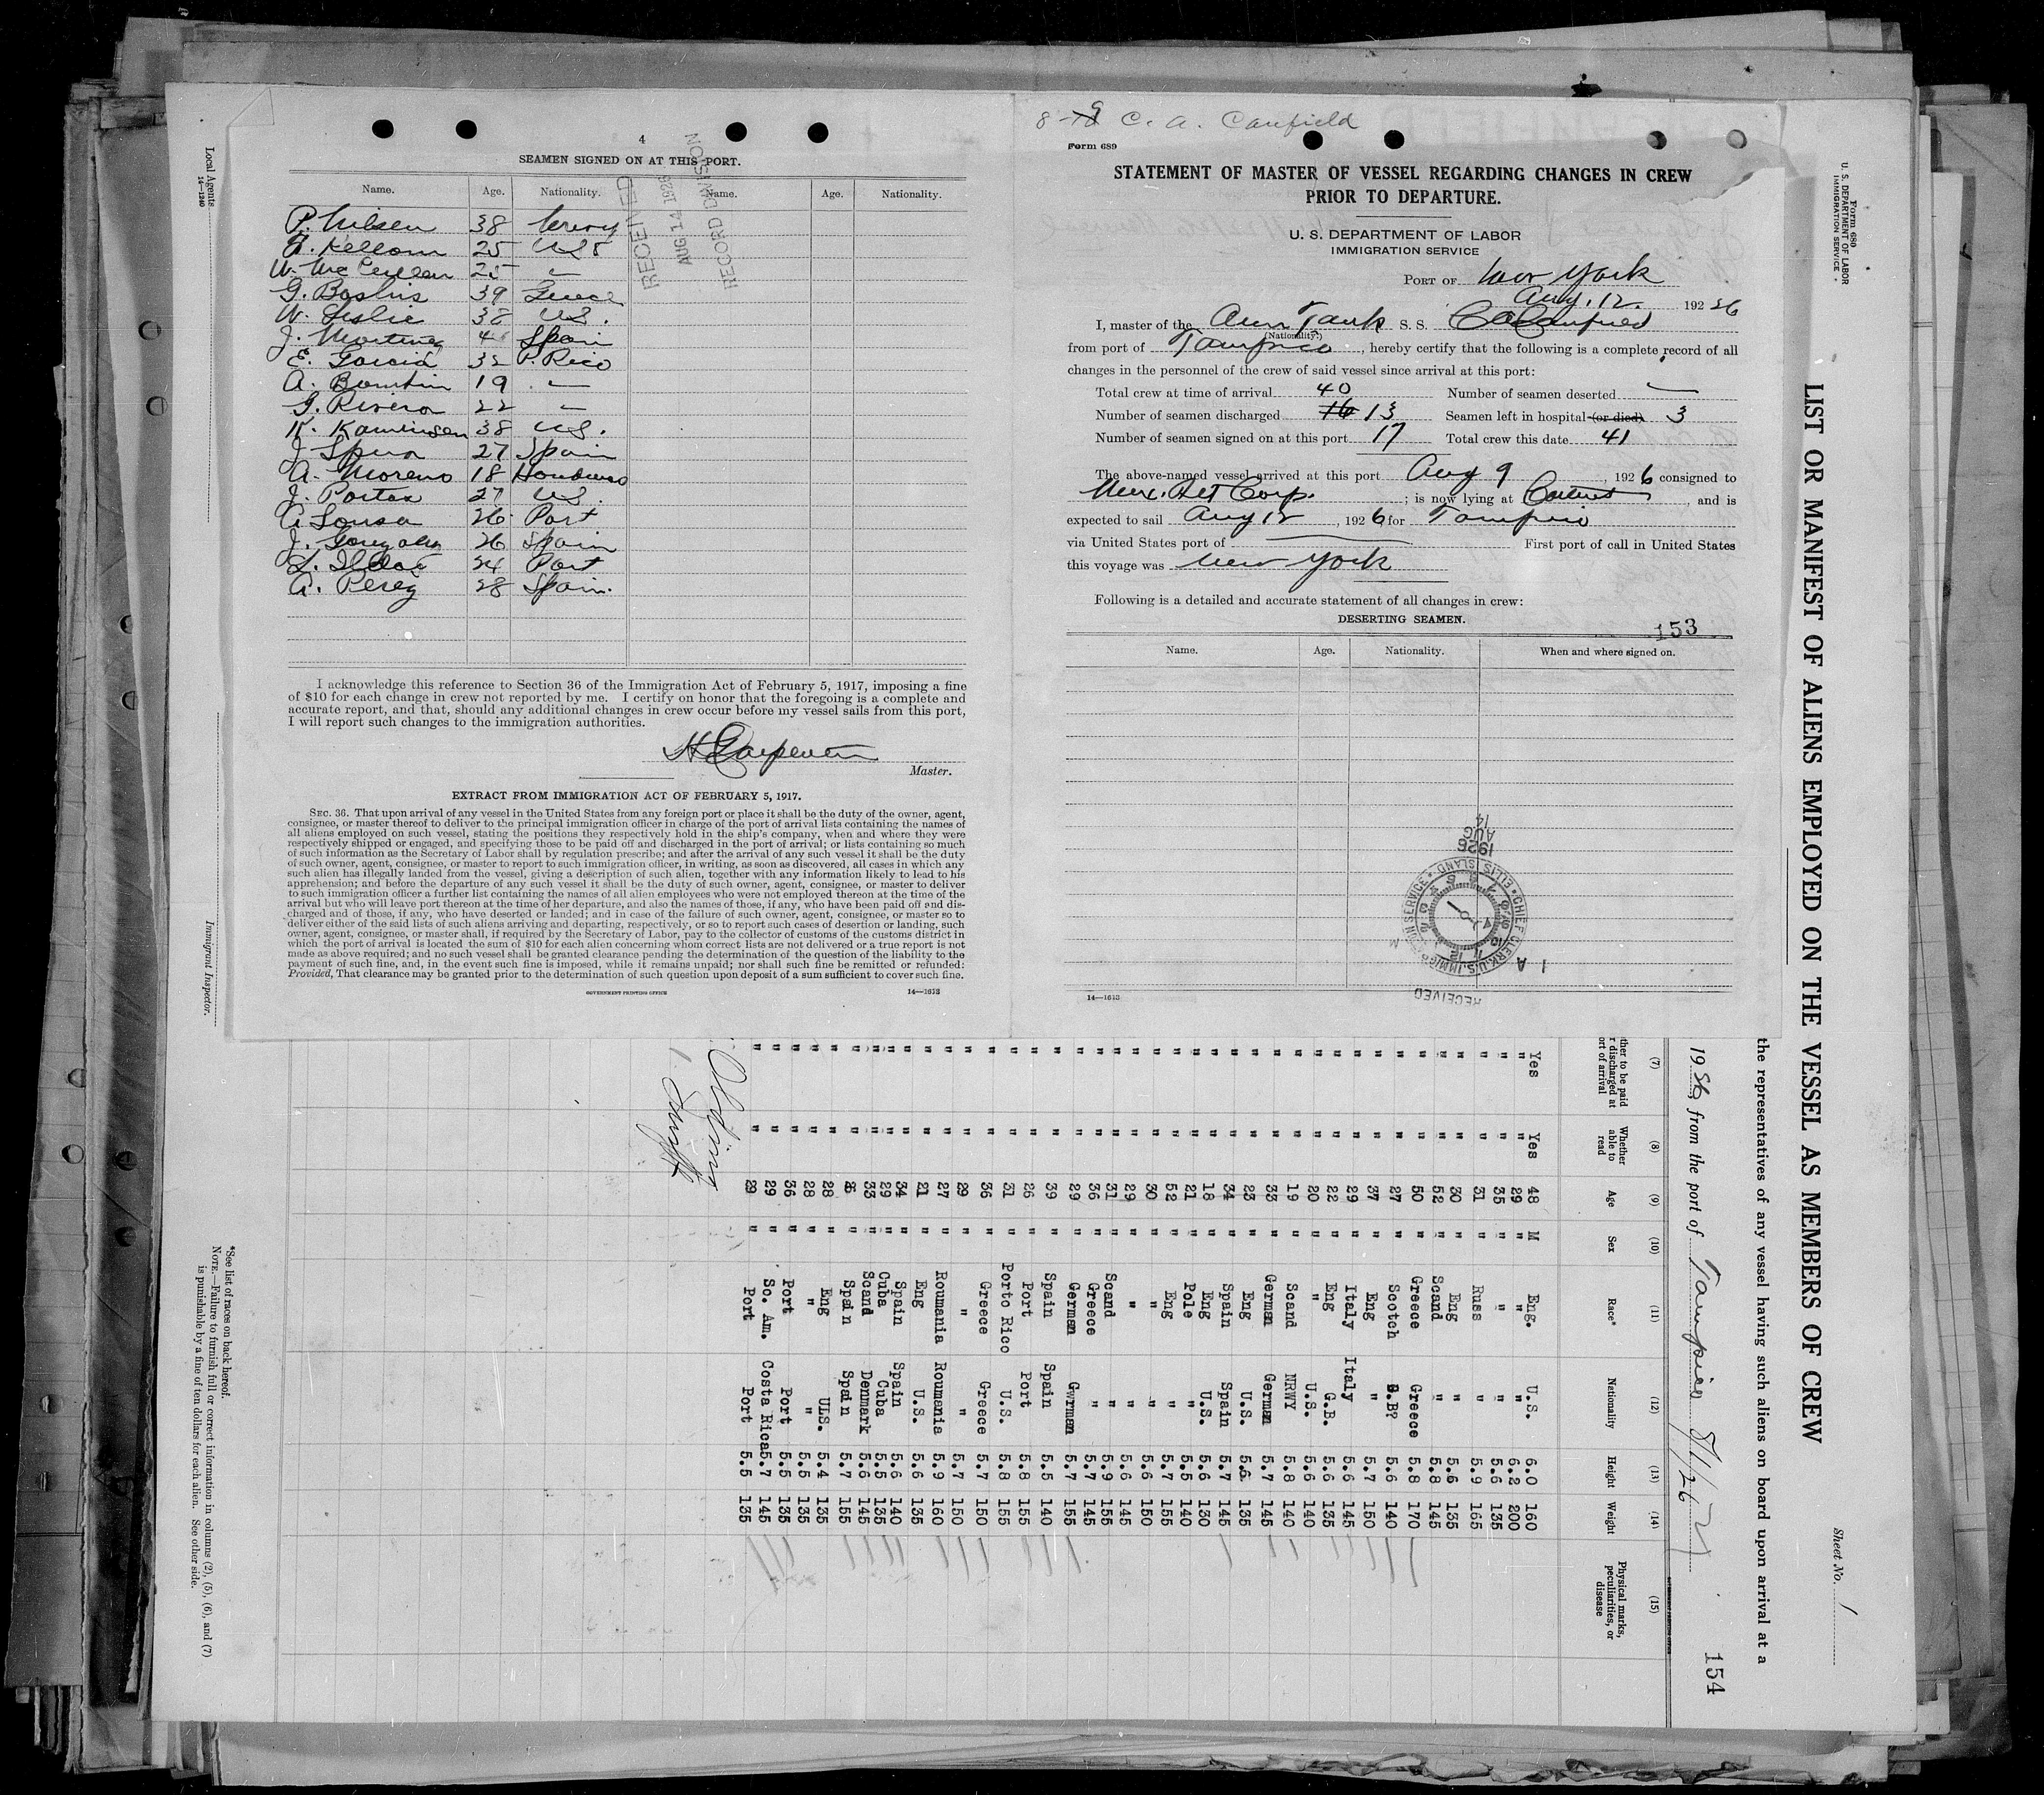 4
SEAMEN SIGNED ON AT THIS PORT.
Name. Age. Nationality. Name. Age. Nationality.
P. Nilsen 38
Kellom 25 U S
W. 25 "
G. 39 Greece
W. Leslie 38 U.S.
J. Martinez 4 Spain
E. Garcia 32 P. Rico
A. 19 "
G. Rivera 22 "
K. 38 U.S.
J. 27 Spain
A. Moreno 18 Honduras
J. 27 U.S.
Sousa 26 Port
J. Gonzales 26 Spain
24 Port
A. Perez 28 Spain.
RECEIVED
AUG 14 1926
RECORD DIVISION
I acknowledge this reference to Section 36 of the Immigration Act of February 5, 1917, imposing a fine
of $10 for each change in crew not reported by me. I certify on honor that the foregoing is a complete and
accurate report, and that, should any additional changes in crew occur before my vessel sails from this port,
I will report such changes to the immigration authorities.
Master.
EXTRACT FROM IMMIGRATION ACT OF FEBRUARY 5, 1917.
SEC. 36. That upon arrival of any vessel in the United States from any foreign port or place it shall be the duty of the owner, agent,
consignee, or master thereof to deliver to the principal immigration officer in charge of the port of arrival lists containing the names of
all aliens employed on such vessel, stating the positions they respectively hold in the ship's company, when and where they were
respectively shipped or engaged, and specifying those to be paid off and discharged in the port of arrival; or lists containing so much
of such information as the Secretary of Labor shall by regulation prescribe; and after the arrival of any such vessel it shall be the duty
of such owner, agent, consignee, or master to report to such immigration officer, in writing, as soon as discovered, all cases in which any
such alien has illegally landed from the vessel, giving a description of such alien, together with any information likely to lead to his
apprehension; and before the departure of any such vessel it shall be the duty of such owner, agent, consignee, or master to deliver
to such immigration officer a further list containing the names of all alien employees who were not employed thereon at the time of the
arrival but who will leave port thereon at the time of her departure, and also the names of those, if any, who have been paid off and dis-
charged and of those, if any, who have deserted or landed; and in case of the failure of such owner, agent, consignee, or master so to
deliver either of the said lists of such aliens arriving and departing, respectively, or so to report such cases of desertion or landing, such
owner, agent, consignee, or master shall, if required by the Secretary of Labor, pay to the collector of customs of the customs district in
which the port of arrival is located the sum of $10 for each alien concerning whom correct lists are not delivered or a true report is not
made as above required; and no such vessel shall be granted clearance pending the determination of the question of the liability to the
payment of such fine, and, in the event such fine is imposed, while it remains unpaid; nor shall such fine be remitted or refunded:
Provided, That clearance may be granted prior to the determination of such question upon deposit of a sum sufficient to cover such fine.
GOVERNMENT PRINTING OFFICE 14—1613
8-9 C. A. Canfield
Form 689
STATEMENT OF MASTER OF VESSEL REGARDING CHANGES IN CREW
PRIOR TO DEPARTURE.
U. S. DEPARTMENT OF LABOR
IMMIGRATION SERVICE
PORT OF New York
Aug. 12. 1926
I, master of the Am Tank S. S. C A Canfield
(Nationality.)
from port of Tampico, hereby certify that the following is a complete record of all
changes in the personnel of the crew of said vessel since arrival at this port:
Total crew at time of arrival 40 Number of seamen deserted —
Number of seamen discharged 16 13 Seamen left in hospital (or died) 3
Number of seamen signed on at this port 17 Total crew this date 41
The above-named vessel arrived at this port Aug 9, 1926 consigned to
Mex. Pet Corp.; is now lying at Carteret, and is
expected to sail Aug 12, 1926 for Tampico
via United States port of — First port of call in United States
this voyage was New York
Following is a detailed and accurate statement of all changes in crew:
DESERTING SEAMEN.
153
Name. Age. Nationality. When and where signed on.
RECEIVED
CHIEF CLERK U.S. IMMIGRATION SERVICE ELLIS ISLAND
1926 AUG 14
14—1613
Form 680
U. S. DEPARTMENT OF LABOR
IMMIGRATION SERVICE
Sheet No. 1
LIST OR MANIFEST OF ALIENS EMPLOYED ON THE VESSEL AS MEMBERS OF CREW
the representatives of any vessel having such aliens on board upon arrival at a
1926, from the port of Tampico 8/1/26
154
(7) (8) (9) (10) (11) (12) (13) (14) (15)
Whether able to read Age Sex Race* Nationality Height Weight Physical marks, peculiarities, or disease
Yes Yes 48 M Eng. U.S. 6.0 160
" " 29 " " " 6.2 200
" " 35 " " " 5.6 135
" " 31 " Russ " 5.9 165
" " 30 " Eng " 5.6 135
" " 52 " Scand " 5.8 145
" " 50 " Greece Greece 5.8 170
" " 27 " Scotch G.B? 5.6 140
" " 37 " Eng " 5.7 150
" " 29 " Italy Italy 5.6 145
" " 22 " Eng G.B. 5.6 135
" " 20 " " U.S. 5.6 140
" " 19 " Scand NRWY 5.8 140
" " 33 " German German 5.7 145
" " 23 " Eng U.S. 5.6 135
" " 34 " Spain Spain 5.7 145
" " 18 " Eng U.S. 5.6 130
" " 21 " Pole " 5.5 140
" " 52 " Eng " 5.7 155
" " 30 " " " 5.6 150
" " 29 " " " 5.6 145
" " 31 " Scand " 5.9 155
" " 36 " Greece " 5.7 145
" " 29 " German Gwrman 5.7 155
" " 39 " Spain Spain 5.5 140
" " 26 " Port Port 5.8 155
" " 31 " Porto Rico U.S. 5.8 155
" " 36 " Greece Greece 5.7 150
" " 29 " " " 5.7 150
" " 27 " Roumania Roumania 5.9 160
" " 21 " Eng U.S. 5.6 135
" " 34 " Spain Spain 5.6 140
" " 29 " Cuba Cuba 5.5 135
" " 33 " Scand Denmark 5.6 145
" " 26 " Spain Spain 5.7 155
" " 28 " Eng ULS. 5.4 135
" " 28 " " " 5.5 135
" " 36 " Port Port 5.5 135
" " 29 " So. Am. Costa Rica 5.7 145
" " 29 " Port Port 5.5 135
Local Agents
14—1240
Immigrant Inspector.
*See list of races on back hereof.
NOTE.—Failure to furnish full or correct information in columns (2), (5), (6), and (7)
is punishable by a fine of ten dollars for each alien. See other side.